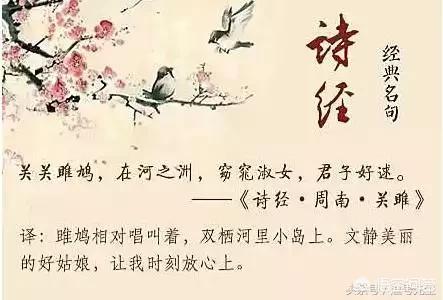 诗经
经典名句
关关雎鸠，在河之洲，窈窕淑女，君子好逑。
——《诗经·周南·关雎》
译：雎鸠相对唱叫着，双栖河里小岛上。文静美丽
的好姑娘，让我时刻放心上。